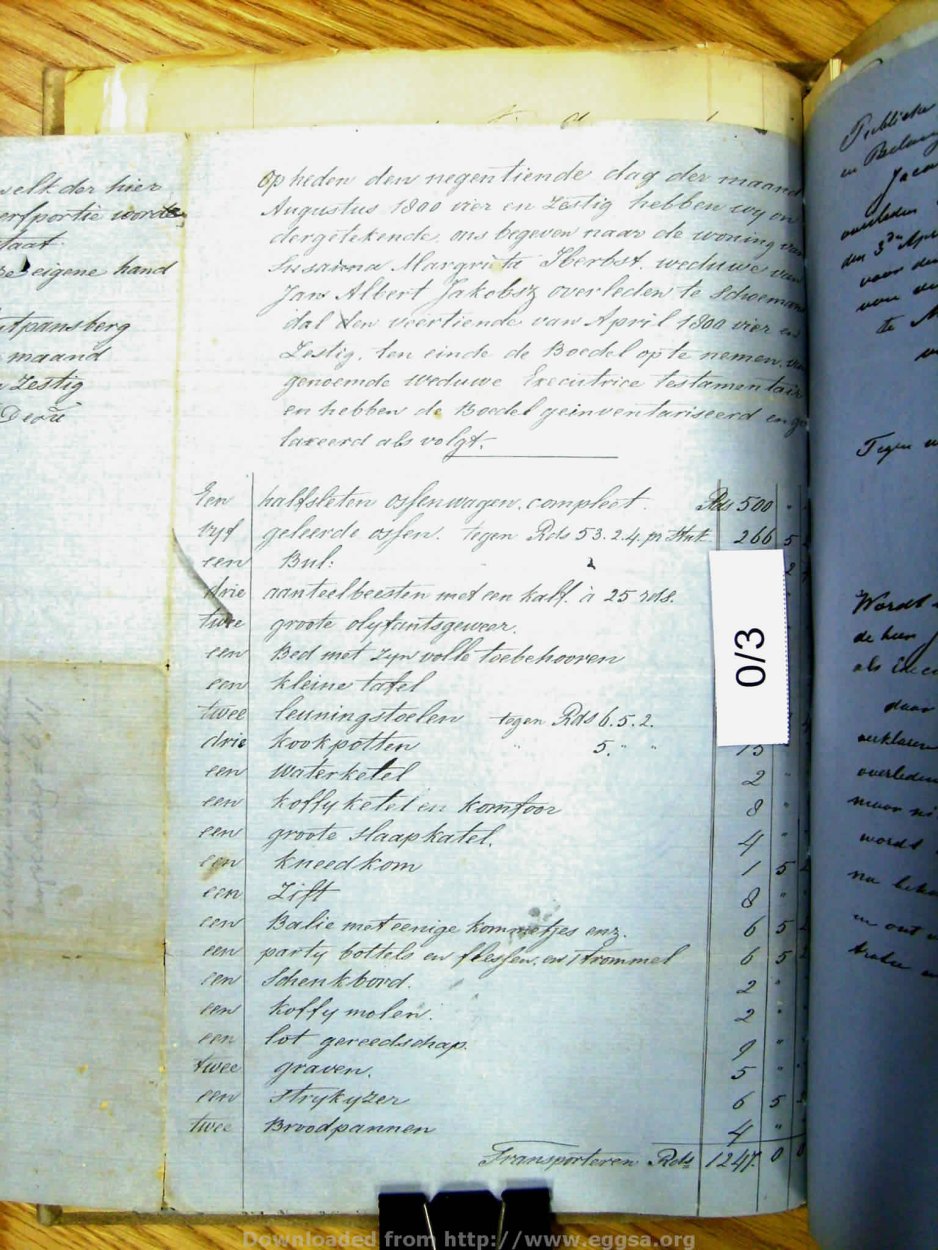 welk der hier
erfportie worde
staat
eigene hand
utpansberg
maand
Zestig
op heden den negentiende dag der maand
Augustus 1800 vier en Zestig hebben wy on
dergetekende, ons begeven naar de woning van
Susanna Margrieta Herbst, weduwe van
Jan Albert Jakobsz overleden te Schoemans
dal den veertiende van April 1800 vier en
Zestig, ten einde de Boedel op te nemen, van
genoemde weduwe Executrice testamentair
en hebben de Boedel geinventariseerd en ge
taxeerd als volgt.
Een halfsleten ossenwagen, compleet. Rds 500 "
vyf geleerde ossen. tegen Rds 53.2.4. pr Stuk 266 5
een Bul: 2
drie aanteelbeesten met een kalf. à 25 rds.
twee groote olyfantsgeweer.
een Bed met zyn volle toebehooren
een kleine tafel
twee leuningstoelen tegen Rds 6.5.2.
drie kookpotten " 5. " " 15
een waterketel 2 "
een koffy ketel en komfoor 8 "
een groote slaapkatel. 4 "
een kneedkom 1 5
een Zift 8 "
een Balie met eenige kommetjes enz. 6 5
een party bottels en flessen, en 1 trommel 6 5
een Schenkbord. 2 "
een koffy molen. 2 "
een lot gereedschap. 9 "
twee graven. 5 "
een Strykyzer 6 5
twee Broodpannen 4 "
Transporteren Rds 1247. 0 0
0/3
Publieke
overleden
den 3de April
voor
te
Tegen
Wordt
de heer
als
daar
verklaren
overleden
maar
wordt
na
Downloaded from http://www.eggsa.org